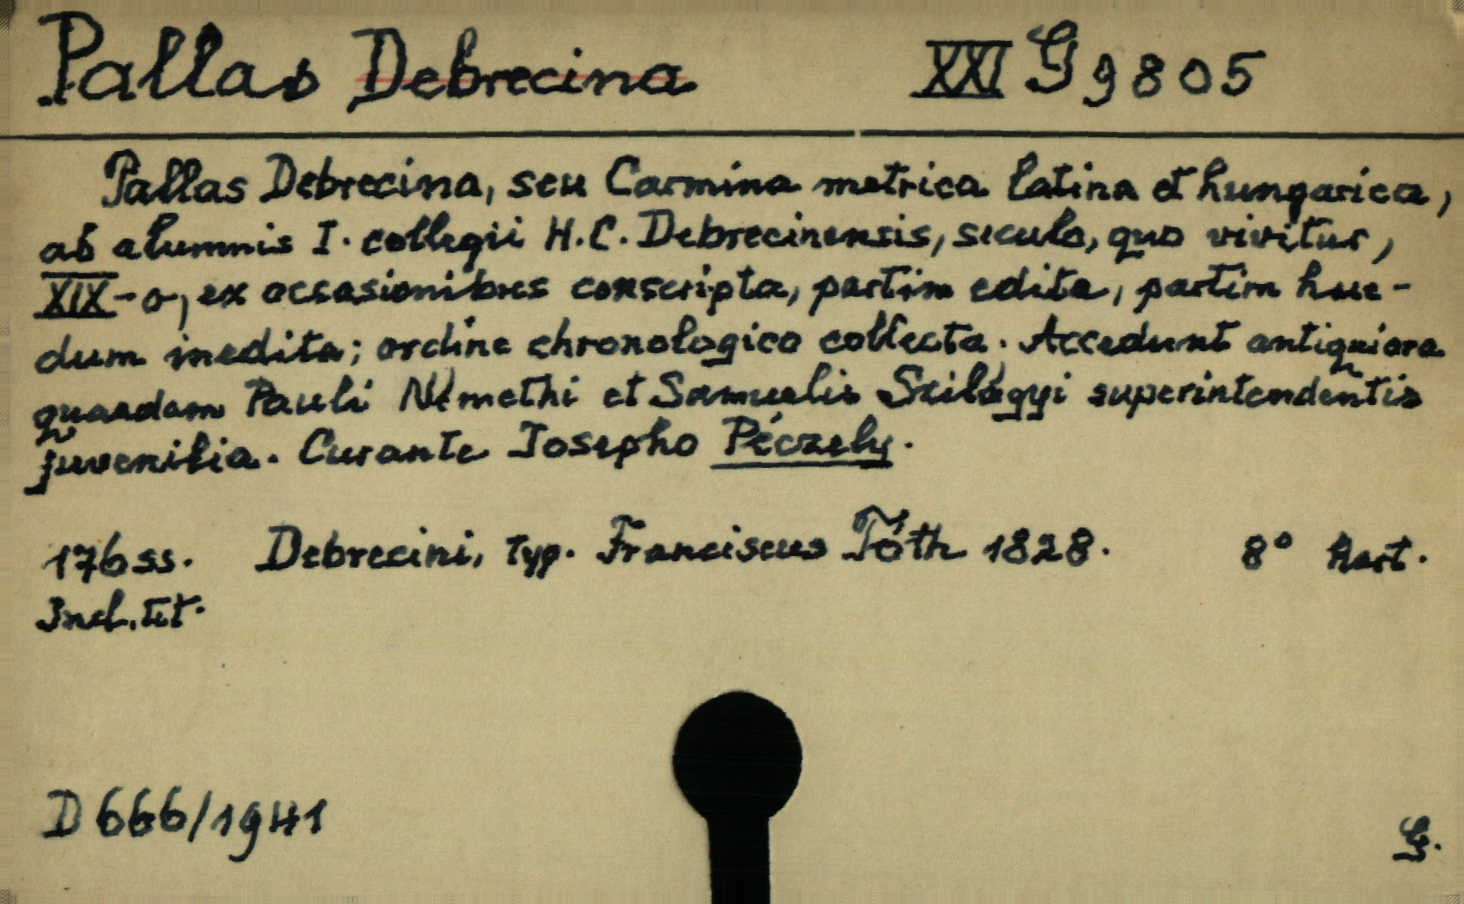 Pallas Debrecina XXI G 9805
Pallas Debrecina, seu Carmina metrica latina et hungarica,
ab alumnis I. collegii H.C. Debrecinensis, seculo, quo vivitur,
XIX-o, ex occasionibus conscripta, partim edita, partim hue-
dum inedita; ordine chronologico collecta. Accedunt antiquiora
quaedam Pauli Némethi et Samuelis Szilágyi superintendentis
juvenilia. Curante Josepho Péczely.
176 ss. Debrecini, Typ. Franciscus Tóth 1828. 8° Hart.
Incl. tit.
D 666/1941
G.